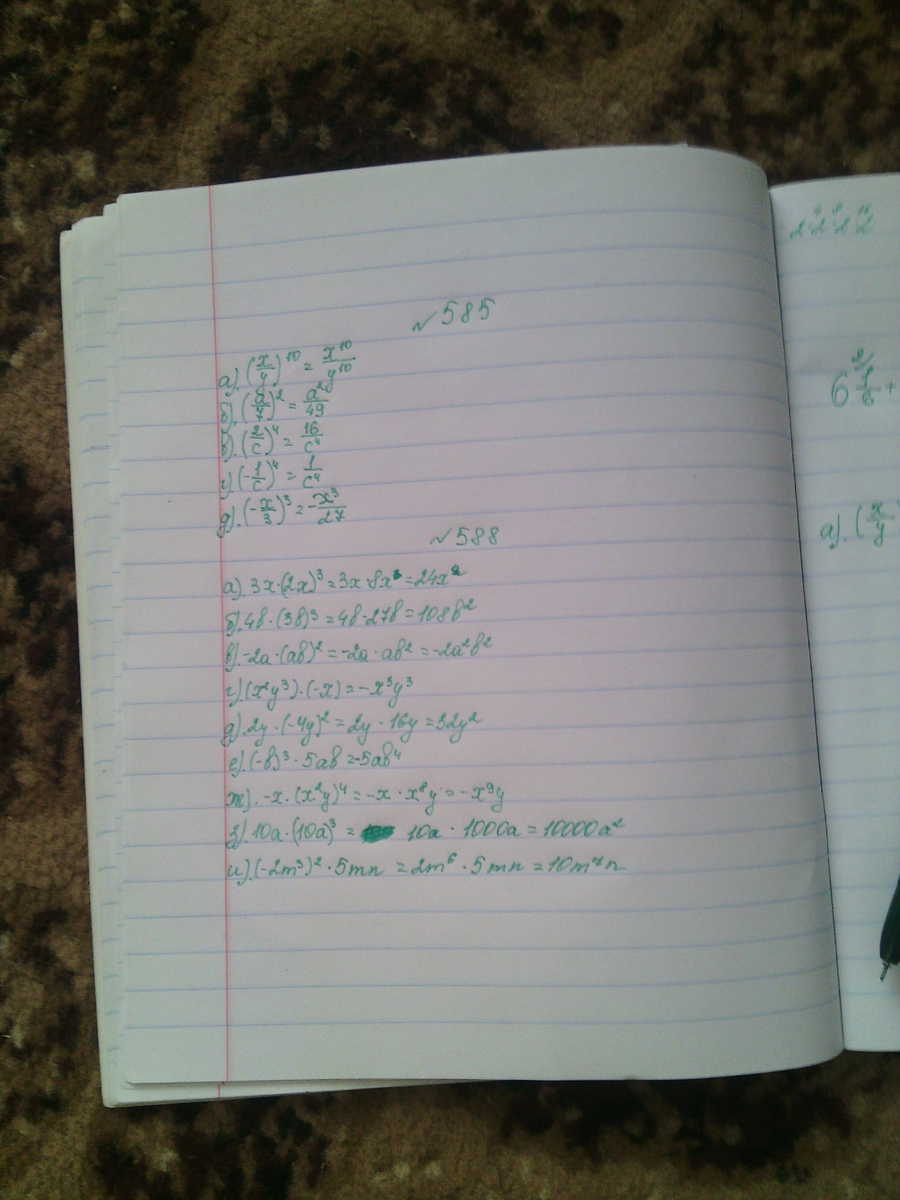 √585
а). (x/y)^10 = x^10/y^10
б). (a/7)^2 = a^2/49
в). (2/c)^4 = 16/c^4
г) (-1/c)^4 = 1/c^4
д). (-x/3)^3 = -x^3/27
√588
а). 3x·(2x)^3 = 3x·8x^3 = 24x^2
б). 4b·(3b)^3 = 4b·27b = 108b^2
в). -2a·(ab)^2 = -2a·ab^2 = -2a^2b^2
г). (x^2y^3)·(-x) = -x^3y^3
д). 2y·(-4y)^2 = 2y·16y = 32y^2
е). (-b)^3·5ab = -5ab^4
ж). -x·(x^2y)^4 = -x·x^8y = -x^9y
з). 10a·(10a)^3 = 10a·1000a = 10000a^2
и). (-2m^3)^2·5mn = 2m^6·5mn = 10m^7n
а). (x/y)